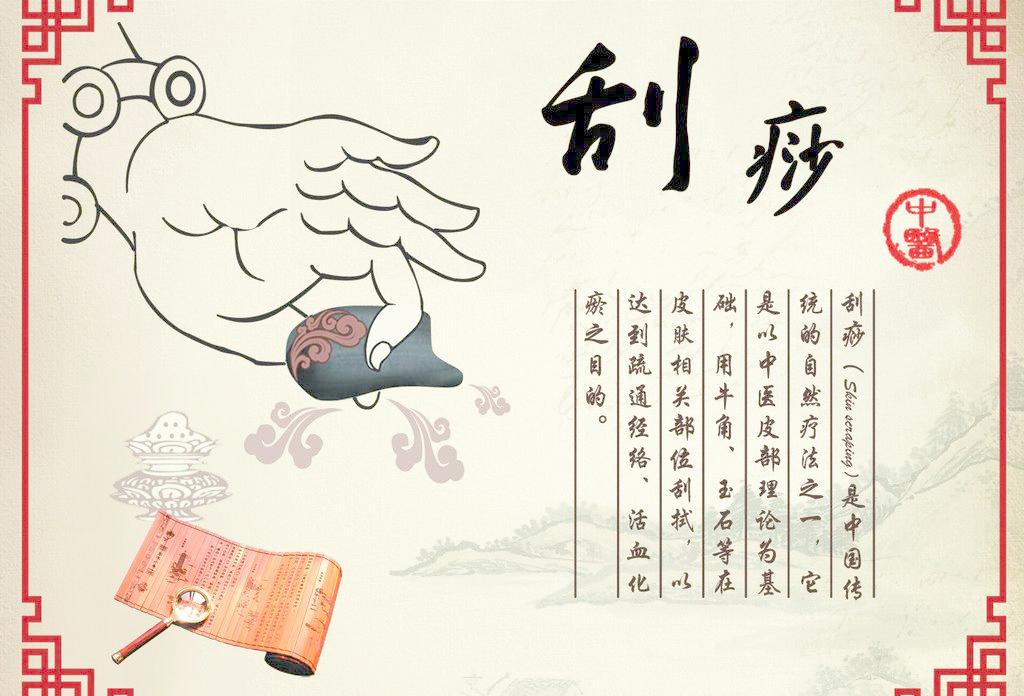 刮痧
中醫
刮痧(Skin scraping)是中国传
统的自然疗法之一，它
是以中医皮部理论为基
础，用牛角、玉石等在
皮肤相关部位刮拭，以
达到疏通经络、活血化
瘀之目的。